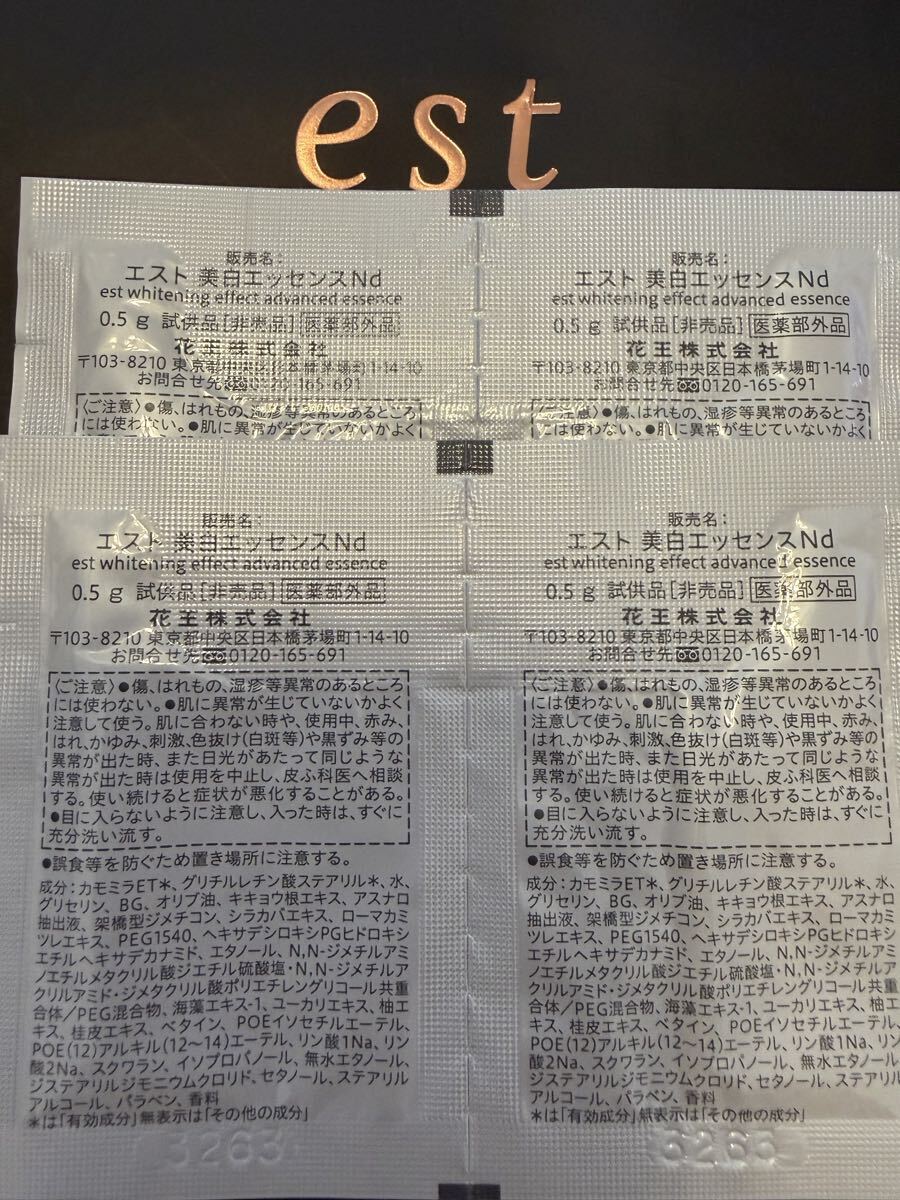 est
販売名:
エスト 美白エッセンスNd
est whitening effect advanced essence
0.5g 試供品[非売品] 医薬部外品
花王株式会社
〒103-8210 東京都中央区日本橋茅場町1-14-10
お問合せ先 0120-165-691
〈ご注意〉●傷、はれもの、湿疹等異常のあるところ
には使わない。●肌に異常が生じていないかよく
販売名:
エスト 美白エッセンスNd
est whitening effect advanced essence
0.5g 試供品[非売品] 医薬部外品
花王株式会社
〒103-8210 東京都中央区日本橋茅場町1-14-10
お問合せ先 0120-165-691
〈ご注意〉●傷、はれもの、湿疹等異常のあるところ
には使わない。●肌に異常が生じていないかよく
販売名:
エスト 美白エッセンスNd
est whitening effect advanced essence
0.5g 試供品[非売品] 医薬部外品
花王株式会社
〒103-8210 東京都中央区日本橋茅場町1-14-10
お問合せ先 0120-165-691
〈ご注意〉●傷、はれもの、湿疹等異常のあるところ
には使わない。●肌に異常が生じていないかよく
注意して使う。肌に合わない時や、使用中、赤み、
はれ、かゆみ、刺激、色抜け(白斑等)や黒ずみ等の
異常が出た時、また日光があたって同じような
異常が出た時は使用を中止し、皮ふ科医へ相談
する。使い続けると症状が悪化することがある。
●目に入らないように注意し、入った時は、すぐに
充分洗い流す。
●誤食等を防ぐため置き場所に注意する。
成分:カモミラET*、グリチルレチン酸ステアリル*、水、
グリセリン、BG、オリブ油、キキョウ根エキス、アスナロ
抽出液、架橋型ジメチコン、シラカバエキス、ローマカミ
ツレエキス、PEG1540、ヘキサデシロキシPGヒドロキシ
エチルヘキサデカナミド、エタノール、N,N-ジメチルアミ
ノエチルメタクリル酸ジエチル硫酸塩・N,N-ジメチルア
クリルアミド・ジメタクリル酸ポリエチレングリコール共重
合体/PEG混合物、海藻エキス-1、ユーカリエキス、柚エ
キス、桂皮エキス、ベタイン、POEイソセチルエーテル、
POE(12)アルキル(12〜14)エーテル、リン酸1Na、リン
酸2Na、スクワラン、イソプロパノール、無水エタノール、
ジステアリルジモニウムクロリド、セタノール、ステアリル
アルコール、パラベン、香料
*は「有効成分」無表示は「その他の成分」
販売名:
エスト 美白エッセンスNd
est whitening effect advanced essence
0.5g 試供品[非売品] 医薬部外品
花王株式会社
〒103-8210 東京都中央区日本橋茅場町1-14-10
お問合せ先 0120-165-691
〈ご注意〉●傷、はれもの、湿疹等異常のあるところ
には使わない。●肌に異常が生じていないかよく
注意して使う。肌に合わない時や、使用中、赤み、
はれ、かゆみ、刺激、色抜け(白斑等)や黒ずみ等の
異常が出た時、また日光があたって同じような
異常が出た時は使用を中止し、皮ふ科医へ相談
する。使い続けると症状が悪化することがある。
●目に入らないように注意し、入った時は、すぐに
充分洗い流す。
●誤食等を防ぐため置き場所に注意する。
成分:カモミラET*、グリチルレチン酸ステアリル*、水、
グリセリン、BG、オリブ油、キキョウ根エキス、アスナロ
抽出液、架橋型ジメチコン、シラカバエキス、ローマカミ
ツレエキス、PEG1540、ヘキサデシロキシPGヒドロキシ
エチルヘキサデカナミド、エタノール、N,N-ジメチルアミ
ノエチルメタクリル酸ジエチル硫酸塩・N,N-ジメチルア
クリルアミド・ジメタクリル酸ポリエチレングリコール共重
合体/PEG混合物、海藻エキス-1、ユーカリエキス、柚エ
キス、桂皮エキス、ベタイン、POEイソセチルエーテル、
POE(12)アルキル(12〜14)エーテル、リン酸1Na、リン
酸2Na、スクワラン、イソプロパノール、無水エタノール、
ジステアリルジモニウムクロリド、セタノール、ステアリル
アルコール、パラベン、香料
*は「有効成分」無表示は「その他の成分」